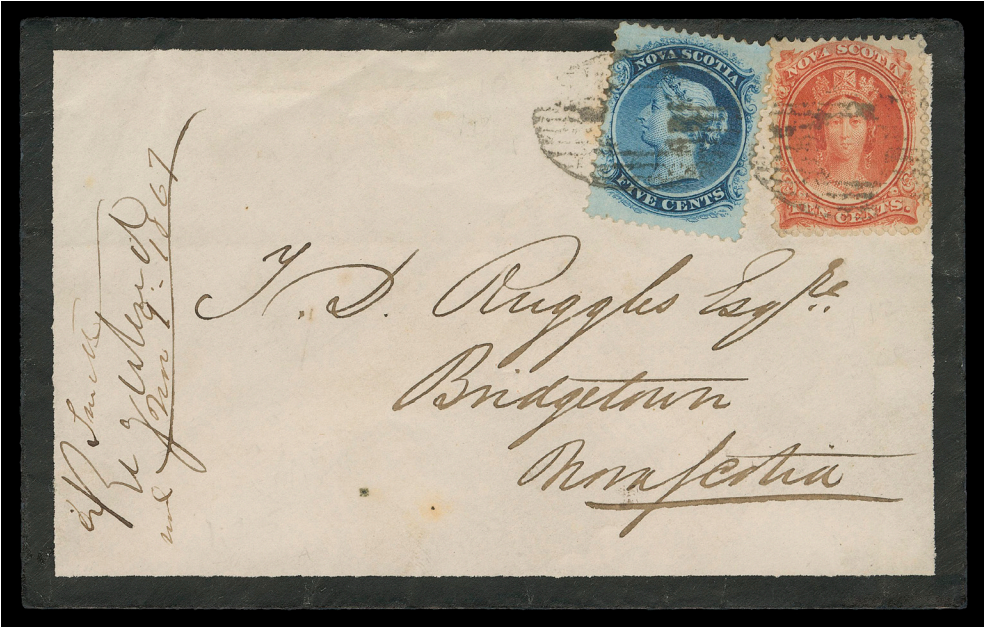 NOVA SCOTIA
FIVE CENTS
NOVA SCOTIA
TEN CENTS.
T. D. Ruggles Esqre.
Bridgetown
Nova Scotia
Registered
Jan 9. 1867